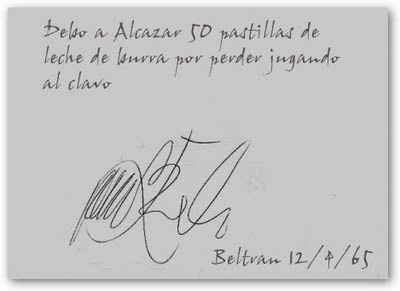 Debo a Alcazar 50 pastillas de
leche de burra por perder jugando
al clavo
Beltran 12/4/65